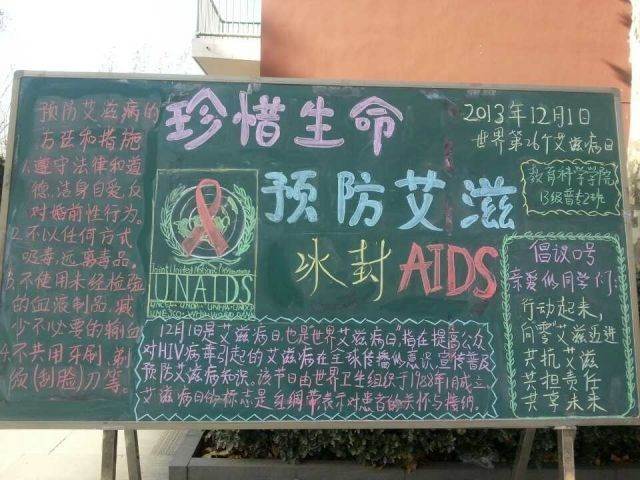 预防艾滋病的
方法和措施
1.遵守法律和道
德,洁身自爱,反
对婚前性行为。
2.不以任何方式
吸毒,远离毒品。
3.不使用未经检验
的血液制品,减
少不必要的输血
4.不共用牙刷,剃
须(刮脸)刀等。
珍惜生命
预防艾滋
冰封AIDS
UNAIDS
12月1日是艾滋病日,也是世界艾滋病日"指在提高公众
对HIV病毒引起的艾滋病在全球传播的意识,宣传普及
预防艾滋病知识。该节日由世界卫生组织于1988年1月成立
艾滋病日的标志是红绸带表示对患者的关怀与接纳。
2013年12月1日
世界第26个艾滋病日
教育科学学院
13级普教2班
倡议口号
亲爱的同学们:
行动起来,
向零"艾滋迈进
共抗艾滋
共担责任
共享未来